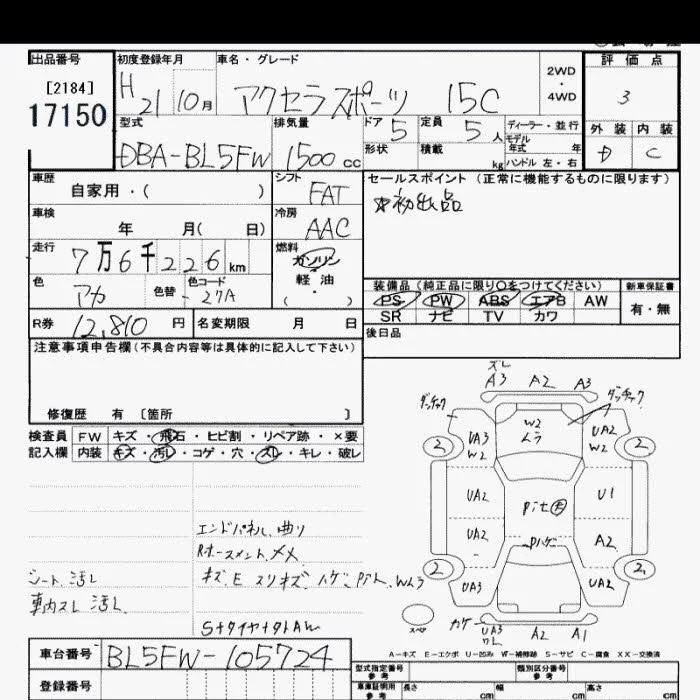 出品番号 初度登録年月 車名・グレード 評価点
[2184] H 21 10月 アクセラスポーツ 15C 2WD・4WD 3
17150 型式 排気量 ドア 5 定員 5人 ディーラー・並行 外装 内装
DBA-BL5FW 1500cc 形状 積載 kg モデル年式 年 ハンドル 左・右 D C
車歴 自家用・( ) シフト FAT セールスポイント (正常に機能するものに限ります)
車検 年 月( 日) 冷房 AAC ☆初出品
走行 7万6千226km 燃料 ガソリン・軽油・( )
色 アカ 色替 色コード 27A 装備品 (純正品に限り○をつけてください) 新車保証書
PS PW ABS エアB AW 有・無
R券 12,810円 名変期限 月 日 SR ナビ TV カワ
注意事項申告欄(不具合内容等は具体的に記入して下さい) 後日品
修復歴 有 [箇所 ]
検査員 FW キズ・飛石・ヒビ割・リペア跡・×要
記入欄 内装 キズ・汚レ・コゲ・穴・スレ・キレ・破レ
エンドパネル 曲り
シート 汚レ
車内スレ 汚レ
ズレ
A3 A2 A3
UA3 W2 W2 ムラ UA2 W2
2 2
UA2 Pit U1
UA2 Pハゲ A2
2 2
UA3 UA2
スペア カケ UA3 A2 A1
A-キズ E-エクボ U-凹み W-補修跡 S-サビ C-腐食 XX-交換済
車台番号 BL5FW-105724
登録番号
型式指定番号 参考 類別区分番号 参考
車庫証明用 参考 長さ cm 幅 cm 高さ cm